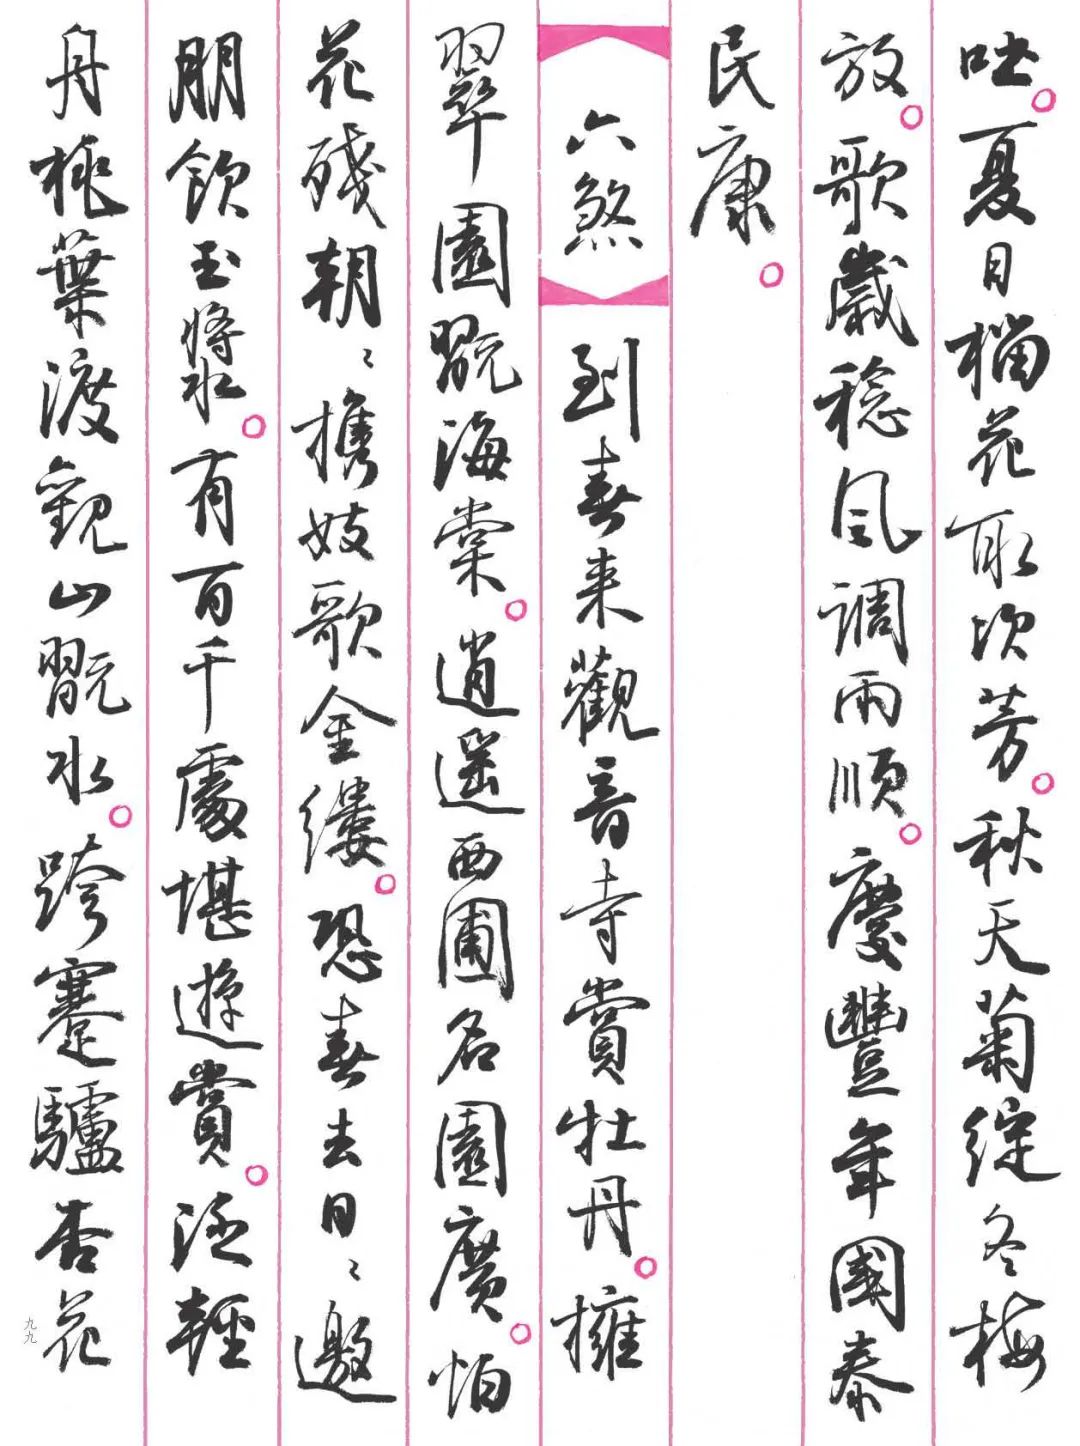 吐。夏日榴花取次芳。秋天菊綻冬梅
放。歌歲稔風調雨順。慶豐年國泰
民康。
六煞
到春来觀音寺賞牡丹。擁
翠園翫海棠。逍遥西圃名園廣。怕
花殘朝〻携妓歌金縷。恐春去日〻邀
朋飲玉漿。有百千處堪遊賞。泛輕
舟桃葉渡觀山翫水。跨蹇驢杏花
九九